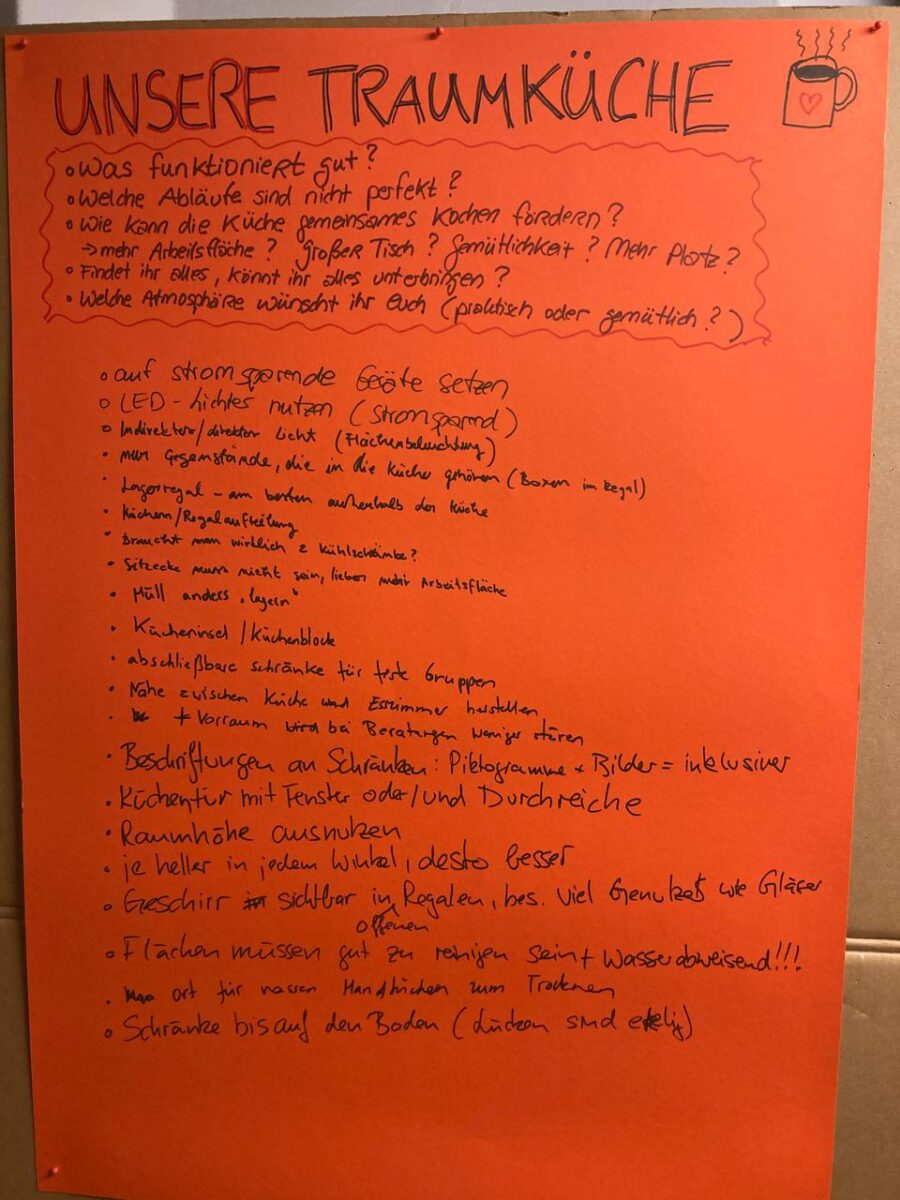 UNSERE TRAUMKÜCHE
• Was funktioniert gut?
• Welche Abläufe sind nicht perfekt?
• Wie kann die Küche gemeinsames Kochen fördern?
→ mehr Arbeitsfläche? großer Tisch? Gemütlichkeit? Mehr Platz?
• Findet ihr alles, könnt ihr alles unterbringen?
• Welche Atmosphäre wünscht ihr euch (praktisch oder gemütlich?)
• auf stromsparende Geräte setzen
• LED-Lichter nutzen (Stromsparend)
• Indirektes/direktes Licht (Flächenbeleuchtung)
• nur Gegenstände, die in die Küche gehören (Boxen im Regal)
• Lagerregal - am besten außerhalb der Küche
• /Regalaufteilung
• braucht man wirklich 2 Kühlschränke?
• Sitzecke muss nicht sein, lieber mehr Arbeitsfläche
• Müll anders "lagern"
• Kücheninsel/Küchenblock
• abschließbare Schränke für feste Gruppen
• Nähe zwischen Küche und Esszimmer herstellen
• + Vorraum wird bei Beratungen weniger stören
• Beschriftungen an Schränken: Piktogramme + Bilder = inklusiver
• Küchentür mit Fenster oder/und Durchreiche
• Raumhöhe ausnutzen
• je heller in jedem Winkel, desto besser
• Geschirr sichtbar in offenen Regalen, bes. viel Genutzes wie Gläser
• Flächen müssen gut zu reinigen sein + wasserabweisend!!!
• ort für nassen Handtücher zum Trocknen
• Schränke bis auf den Boden (Lücken sind eklig)